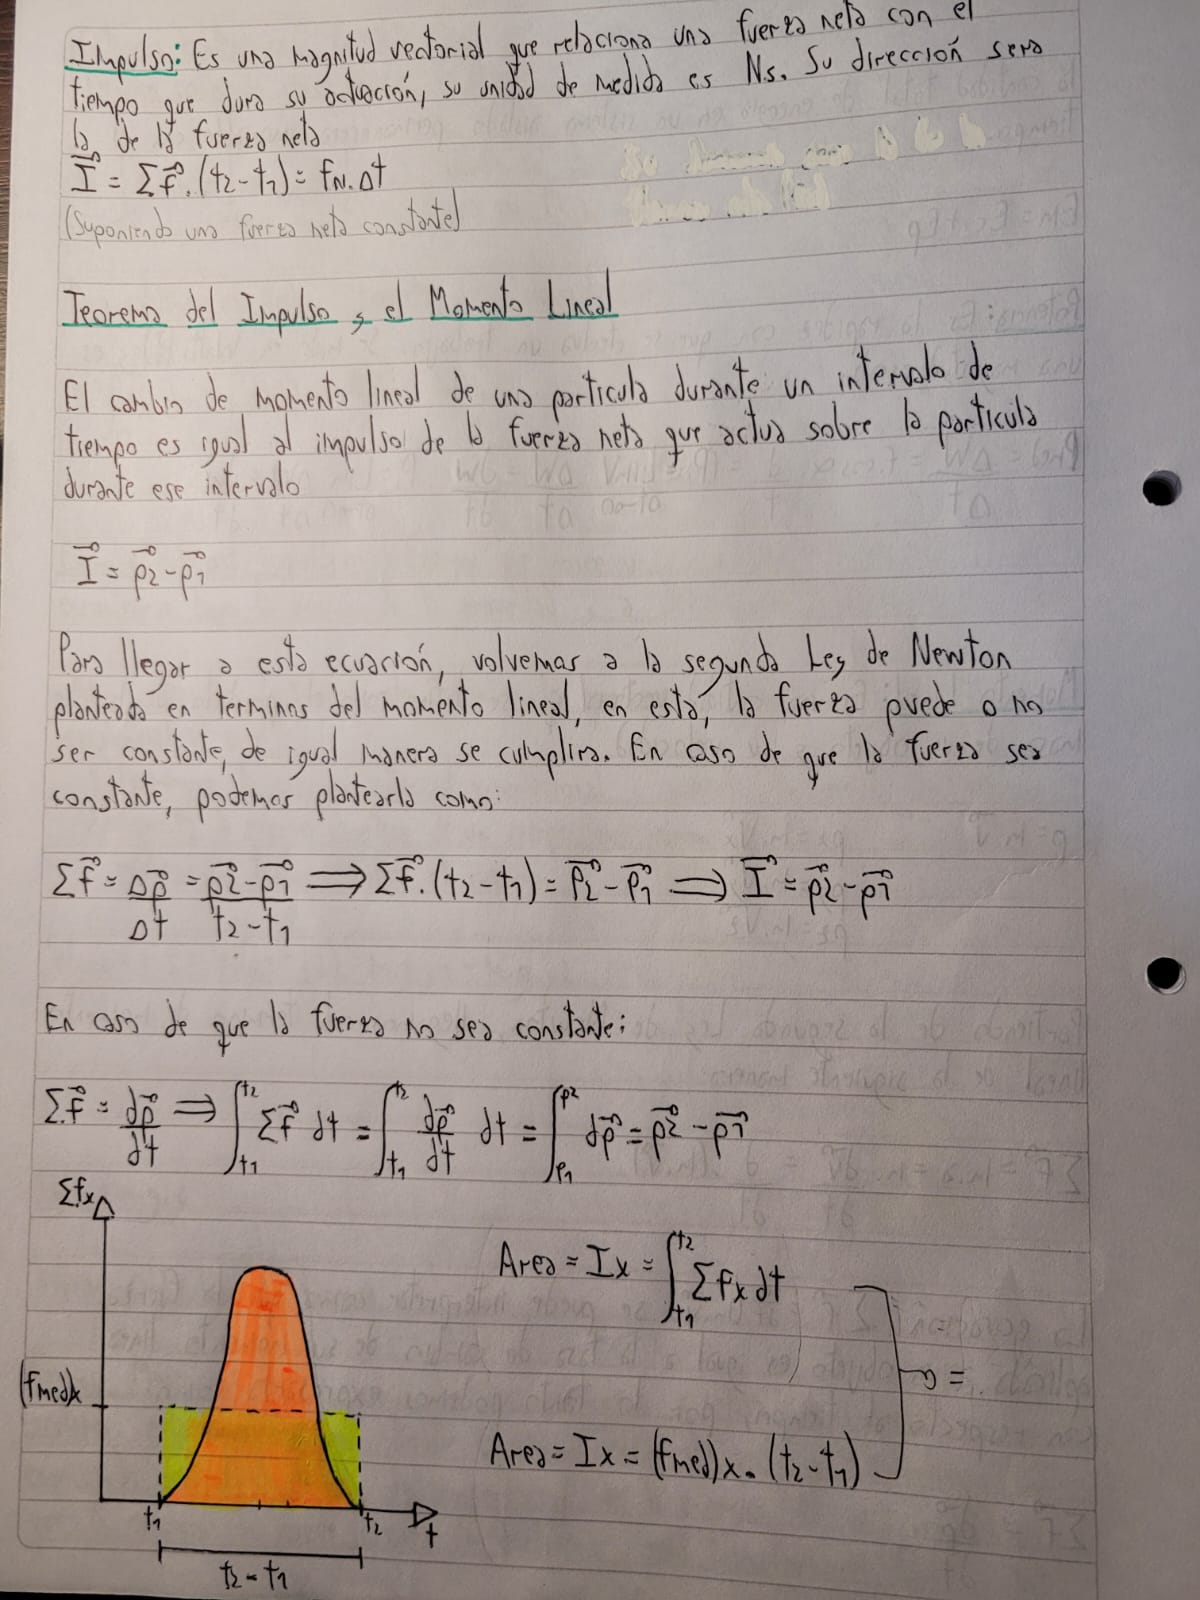 Impulso: Es una magnitud vectorial que relaciona una fuerza neta con el
tiempo que dura su actuación, su unidad de medida es Ns. Su dirección sera
la de la fuerza neta
I⃗ = Σf⃗.(t2-t1) = fN.Δt
(Suponiendo una fuerza neta constante)
Teorema del Impulso y el Momento Lineal
El cambio de momento lineal de una particula durante un intervalo de
tiempo es igual al impulso de la fuerza neta que actua sobre la particula
durante ese intervalo
I⃗ = p⃗2 - p⃗1
Para llegar a esta ecuación, volvemas a la segunda Ley de Newton
planteada en terminos del momento lineal, en esta, la fuerza puede o no
ser constante, de igual manera se cumplira. En caso de que la fuerza sea
constante, podemos plantearla como:
Σf⃗ = Δp⃗/Δt = (p⃗2 - p⃗1)/(t2-t1) ⟹ Σf⃗.(t2-t1) = p⃗2 - p⃗1 ⟹ I⃗ = p⃗2 - p⃗1
En caso de que la fuerza no sea constante:
Σf⃗ = dp⃗/dt ⟹ ∫t1t2 Σf⃗ dt = ∫t1t2 dp⃗/dt dt = ∫p1p2 dp⃗ = p⃗2 - p⃗1
Σfx
Area = Ix = ∫t1t2 Σfx dt
=
(fmed)x
Area = Ix = (fmed)x.(t2-t1)
t1
t2
t
t2-t1